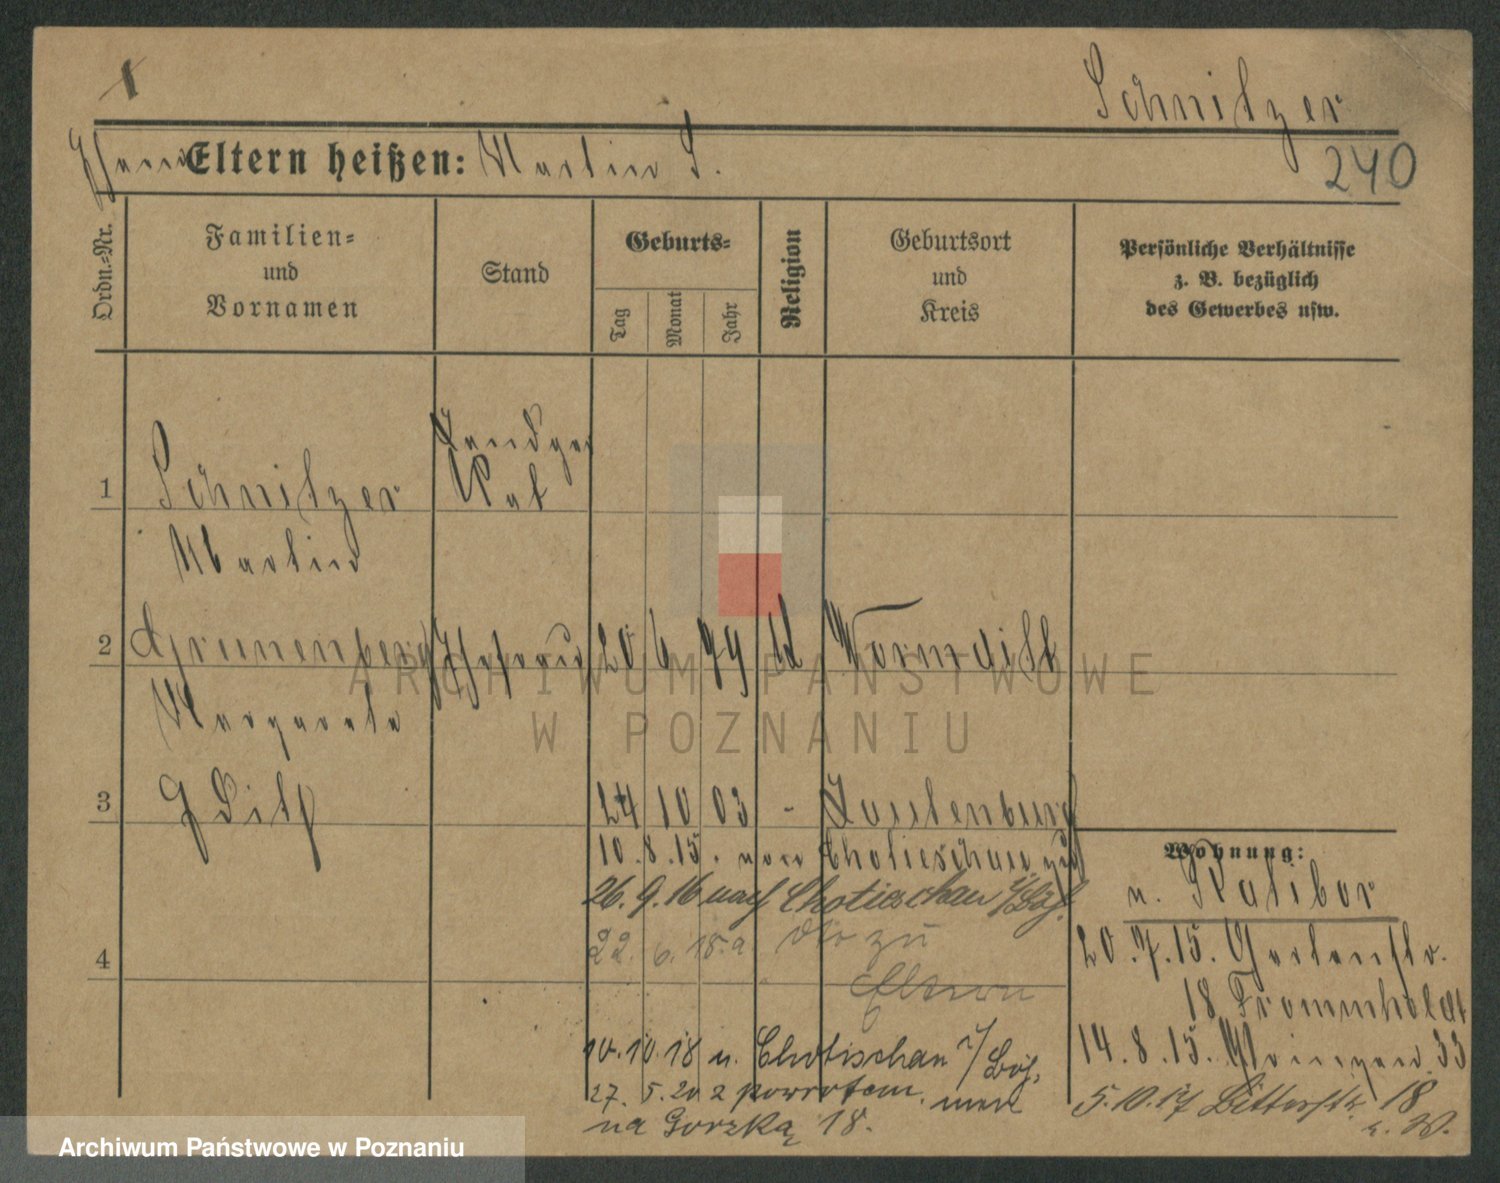 Schnitzer
Eltern heißen: Martin S.
240
Ordn.-Nr.
Familien-
und
Vornamen
Stand
Geburts-
Tag
Monat
Jahr
Religion
Geburtsort
und
Kreis
Persönliche Verhältnisse
z. B. bezüglich
des Gewerbes usw.
1
Schnitzer
Martin
Landger
Rat
2
Grunenberg
Margarete
Ehefrau
20 6 79
Wormditt
3
Edith
24 10 03 - Lautenburg
10. 8. 15. von Chotieschau zur
26. 9. 16 nach Chotieschau i/Böh.
4
22. 6. 18. a
zu
Eltern
10. 10. 18 n. Chotischau i/Böh.
27. 5. 20 z powrotem
na Gorzką 18.
Wohnung:
v. Ratibor
20. 7. 15. Gartenstr.
18 Frommholdt
14. 8. 15. 33
5. 10. 17 Bitterstr. 18
ARCHIWUM PAŃSTWOWE
W POZNANIU
Archiwum Państwowe w Poznaniu